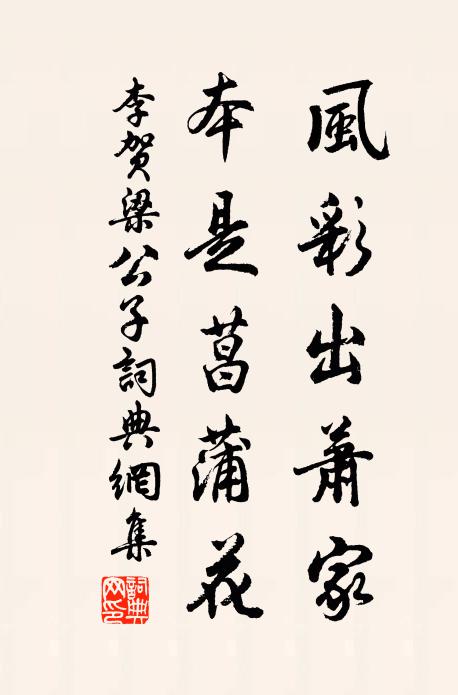 風彩出蕭家
本是菖蒲花
李賀梁公子詞典網集
詞典網印